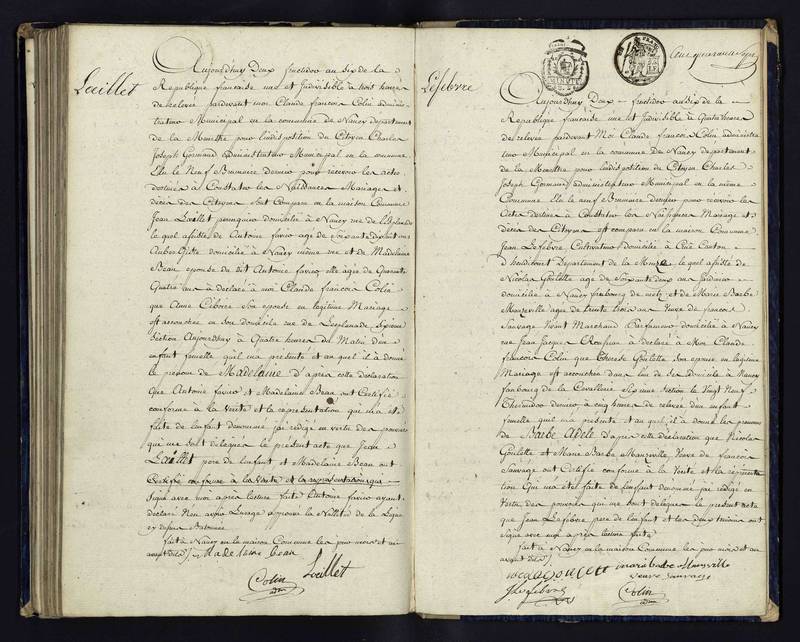 Loeillet
Aujourd'huy Deux fructidor an six de la
République francaise une et Indivisible à trois heures
de relevée pardevant moi Claude francois Colin administ-
trateur Municipal en la commune de Nancy departement
de la Meurthe pour l'indisposition du Citoyen Charles
Joseph Germain administrateur Municipal en la commune
Elu le Neuf Brumaire dernier pour recevoir les actes
destinés à Constater les Naissances Mariages et
décès des Citoyens est Comparu en la maison Commune
Jean Loeillet perruquier domicilié à Nancy rue de l'Esplanade
le quel assisté de Antoine favier agé de soixante ans
Aubergiste domicilié à Nancy même rue et de Madelaine
Beau epouse du dit Antoine favier elle agée de Quarante
Quatre ans à déclaré à moi Claude francois Colin
que Anne Ciboire son epouse en legitime Mariage
est accouchée en son domicile rue de l'esplanade sixieme
Section Aujourd'huy à Quatre heures du Matin d'un
enfant femelle quil m'a presenté et au quel il à donné
le prénom de Madelaine d'après cette déclaration
que Antoine favier et Madelaine Beau ont Certifié
conforme à la Verité et la representation qui m'a eté
faite de lenfant denommé j'ai redigé en vertu des pouvoirs
qui me sont delegués le présent acte que Jean
Loeillet pere de lenfant et Madelaine Beau ont
Certifié conforme à la Verité et la representation que
signé avec moi après lecture faite Antoine favier ayant
declaré Non avoir Lusage approuvé la Nullité de la Ligne
cy dessus batonnée
fait à Nancy en la maison Commune les jour mois et an
avant dits
Madelaine beau
Loeillet
Colin
adm
Lefebvre
Aujourd'huy Deux fructidor an six de la
République francaise une et Indivisible à Quatre heures
de relevée pardevant Moi Claude francois Colin administra
teur Municipal en la commune de Nancy departement
de la Meurthe pour l'indisposition du Citoyen Charles
Joseph Germain administrateur Municipal en la même
Commune Elu le neuf Brumaire dernier pour recevoir les
Actes destinés à Constater les Naissances Mariages et
décès des Citoyens est comparu en la maison Commune
Jean Lefebvre Cultivateur domicilié à Canton
d'heudicourt Departement de la Meuse, le quel assisté de
Nicolas Goulette agé de soixante deux ans jardinier
domicilié à Nancy fauxbourg de metz et de Marie Barbe
Manzeville agée de trente trois ans Veuve de francois
Sauvage Vivant Marchand Parfumeur domiciliée à Nancy
rue Jean Jacques Rousseau à déclaré à Moi Claude
francois Colin que Therese Goulette son epouse en legitime
Mariage est accouchée dans lun de ses domicile à Nancy
faubourg de la Cavallerie sixieme section le Vingt Neuf
Thermidor dernier à cinq heures de relevée dun enfant
femelle quil m'a présenté et au quel il à donné les prenoms
de Barbe Adele d'après cette déclaration que Nicolas
Goulette et Marie Barbe Manzeville Veuve de francois
Sauvage ont Certifié conforme à la Verité et la representation
Qui m'a eté faite de lenfant denommé j'ai redigé en
Vertu des pouvoirs qui me sont delegués le present acte
que Jean Lefebvre pere de lenfant et les deux temoins ont
signé avec moi après lecture faite
fait à Nancy en la maison Commune les jour mois et an
avant dits
marie barbe
veuve sauvage
J Lefebvre
Colin
adm